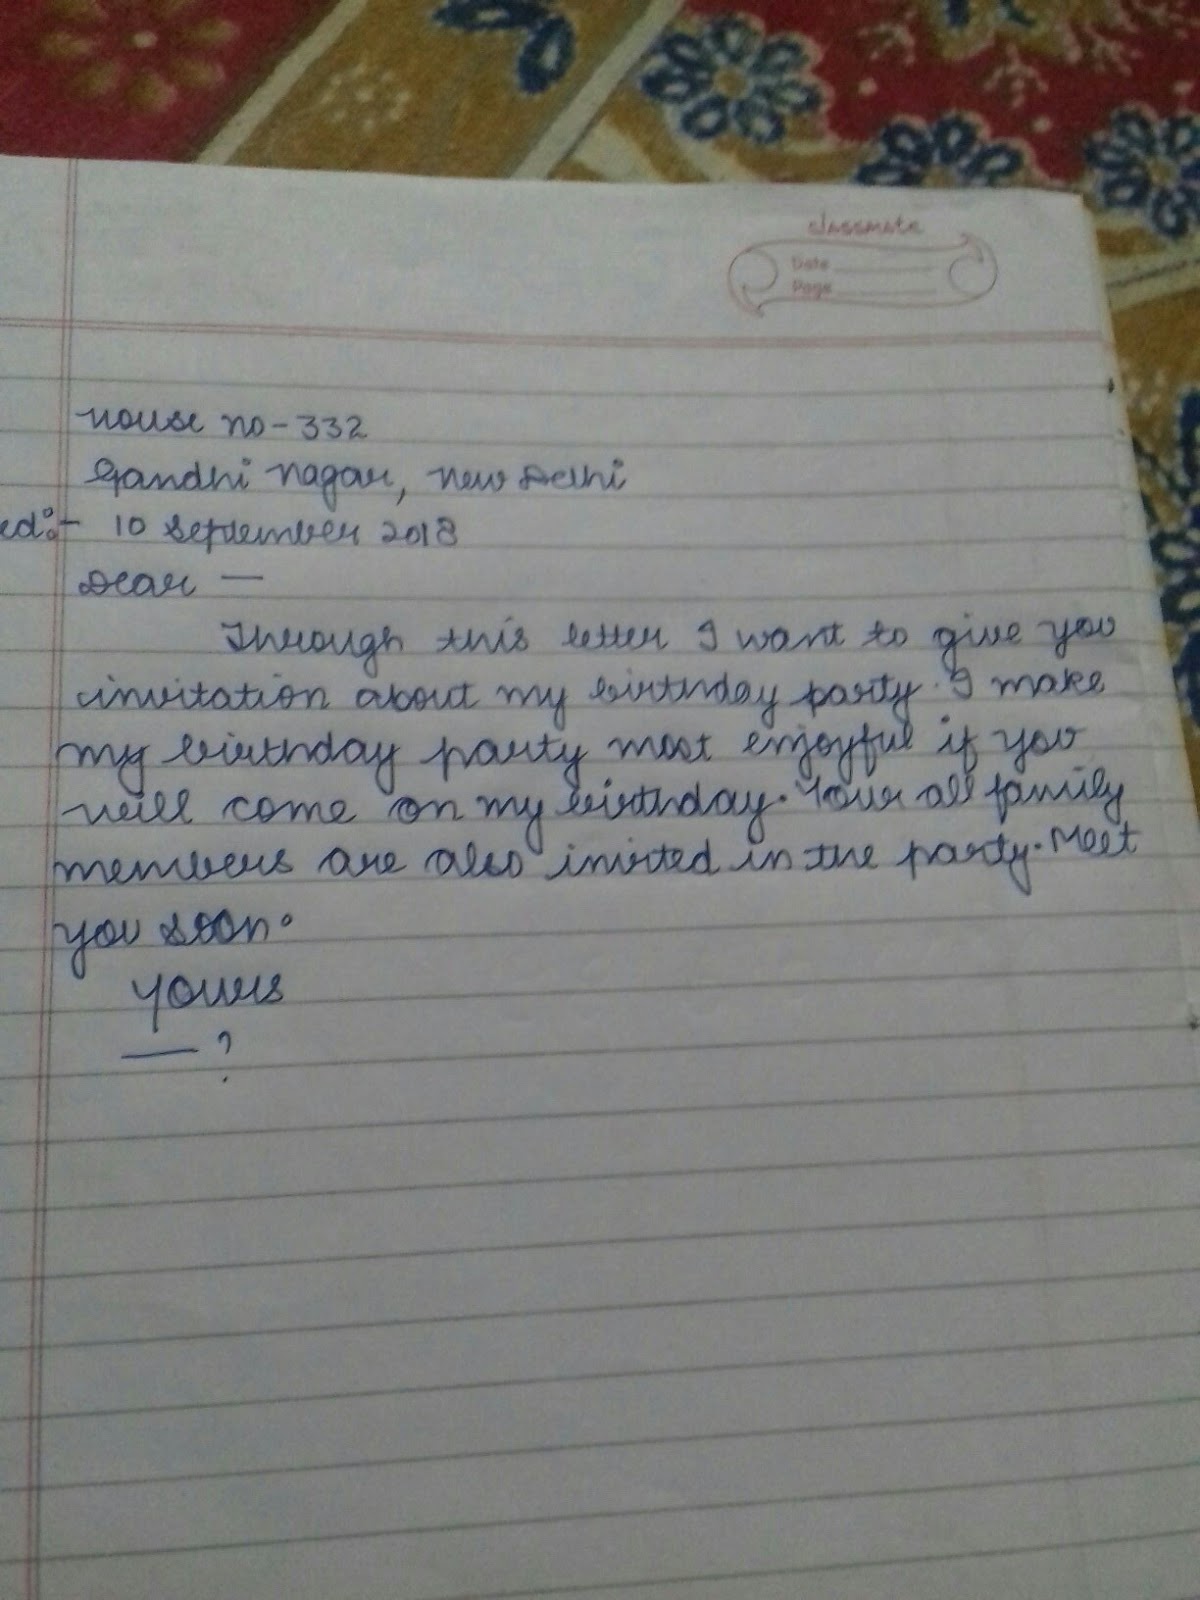 classmate
Date
Page
House no - 332
Gandhi nagar, New Delhi
ed:- 10 September 2018
Dear —
Through this letter I want to give you
invitation about my birthday party. I make
my birthday party most enjoyful if you
will come on my birthday. Your all family
members are also invited in the party. Meet
you soon.
Yours
— ?